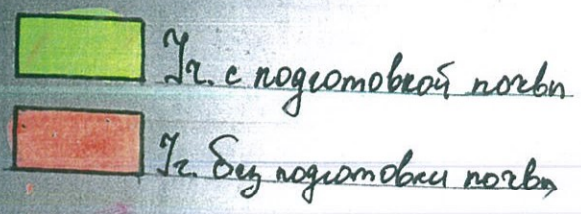 Уч. с подготовкой почвы
Уч. без подготовки почвы